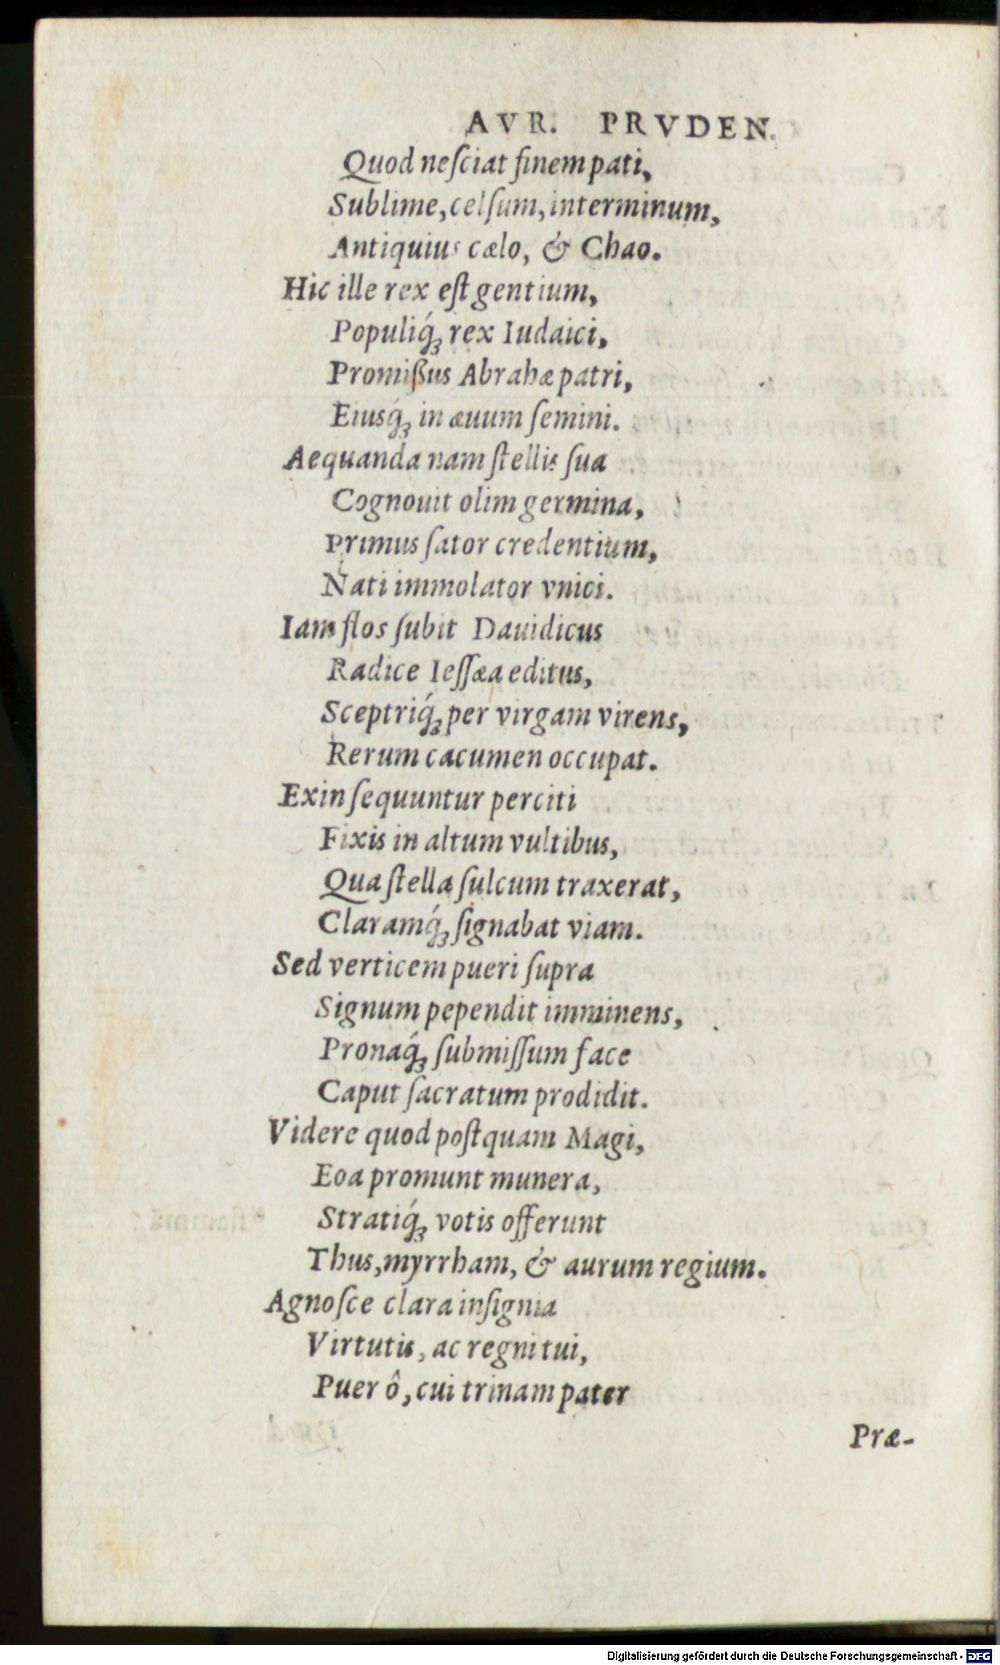 AVR. PRVDEN.
Quod neſciat finem pati,
Sublime, celſum, interminum,
Antiquius cælo, & Chao.
Hic ille rex eſt gentium,
Populiq́; rex Iudaici,
Promißus Abrahæ patri,
Eiusq́; in æuum ſemini.
Aequanda nam ſtellis ſua
Cognouit olim germina,
Primus ſator credentium,
Nati immolator vnici.
Iam flos ſubit Dauidicus
Radice Ieſſæa editus,
Sceptriq́; per virgam virens,
Rerum cacumen occupat.
Exin ſequuntur perciti
Fixis in altum vultibus,
Qua ſtella ſulcum traxerat,
Claramq́; ſignabat viam.
Sed verticem pueri ſupra
Signum pependit imminens,
Pronaq́; ſubmiſſum face
Caput ſacratum prodidit.
Videre quod poſtquam Magi,
Eoa promunt munera,
Stratiq́; votis offerunt
Thus, myrrham, & aurum regium.
Agnoſce clara inſignia
Virtutis, ac regni tui,
Puer ô, cui trinam pater
Præ-
Digitalisierung gefördert durch die Deutsche Forschungsgemeinschaft - DFG